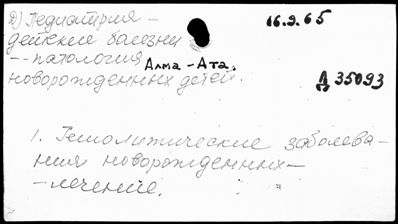 2) Педиатрия - 16.9.65
детские болезни
-- патология Алма-Ата.
новорожденных детей. Д 35093
1. Гемолитические заболева-
ния новорожденных -
- лечение.